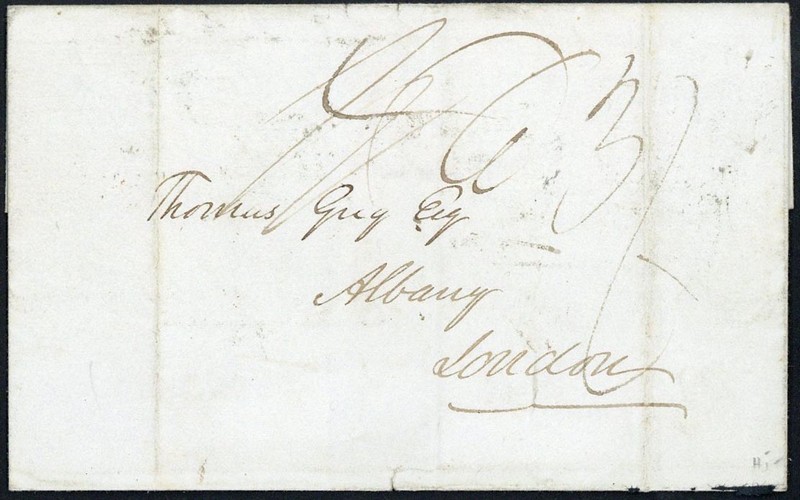 3/
Thomas Greg Esq
Albany
London
H